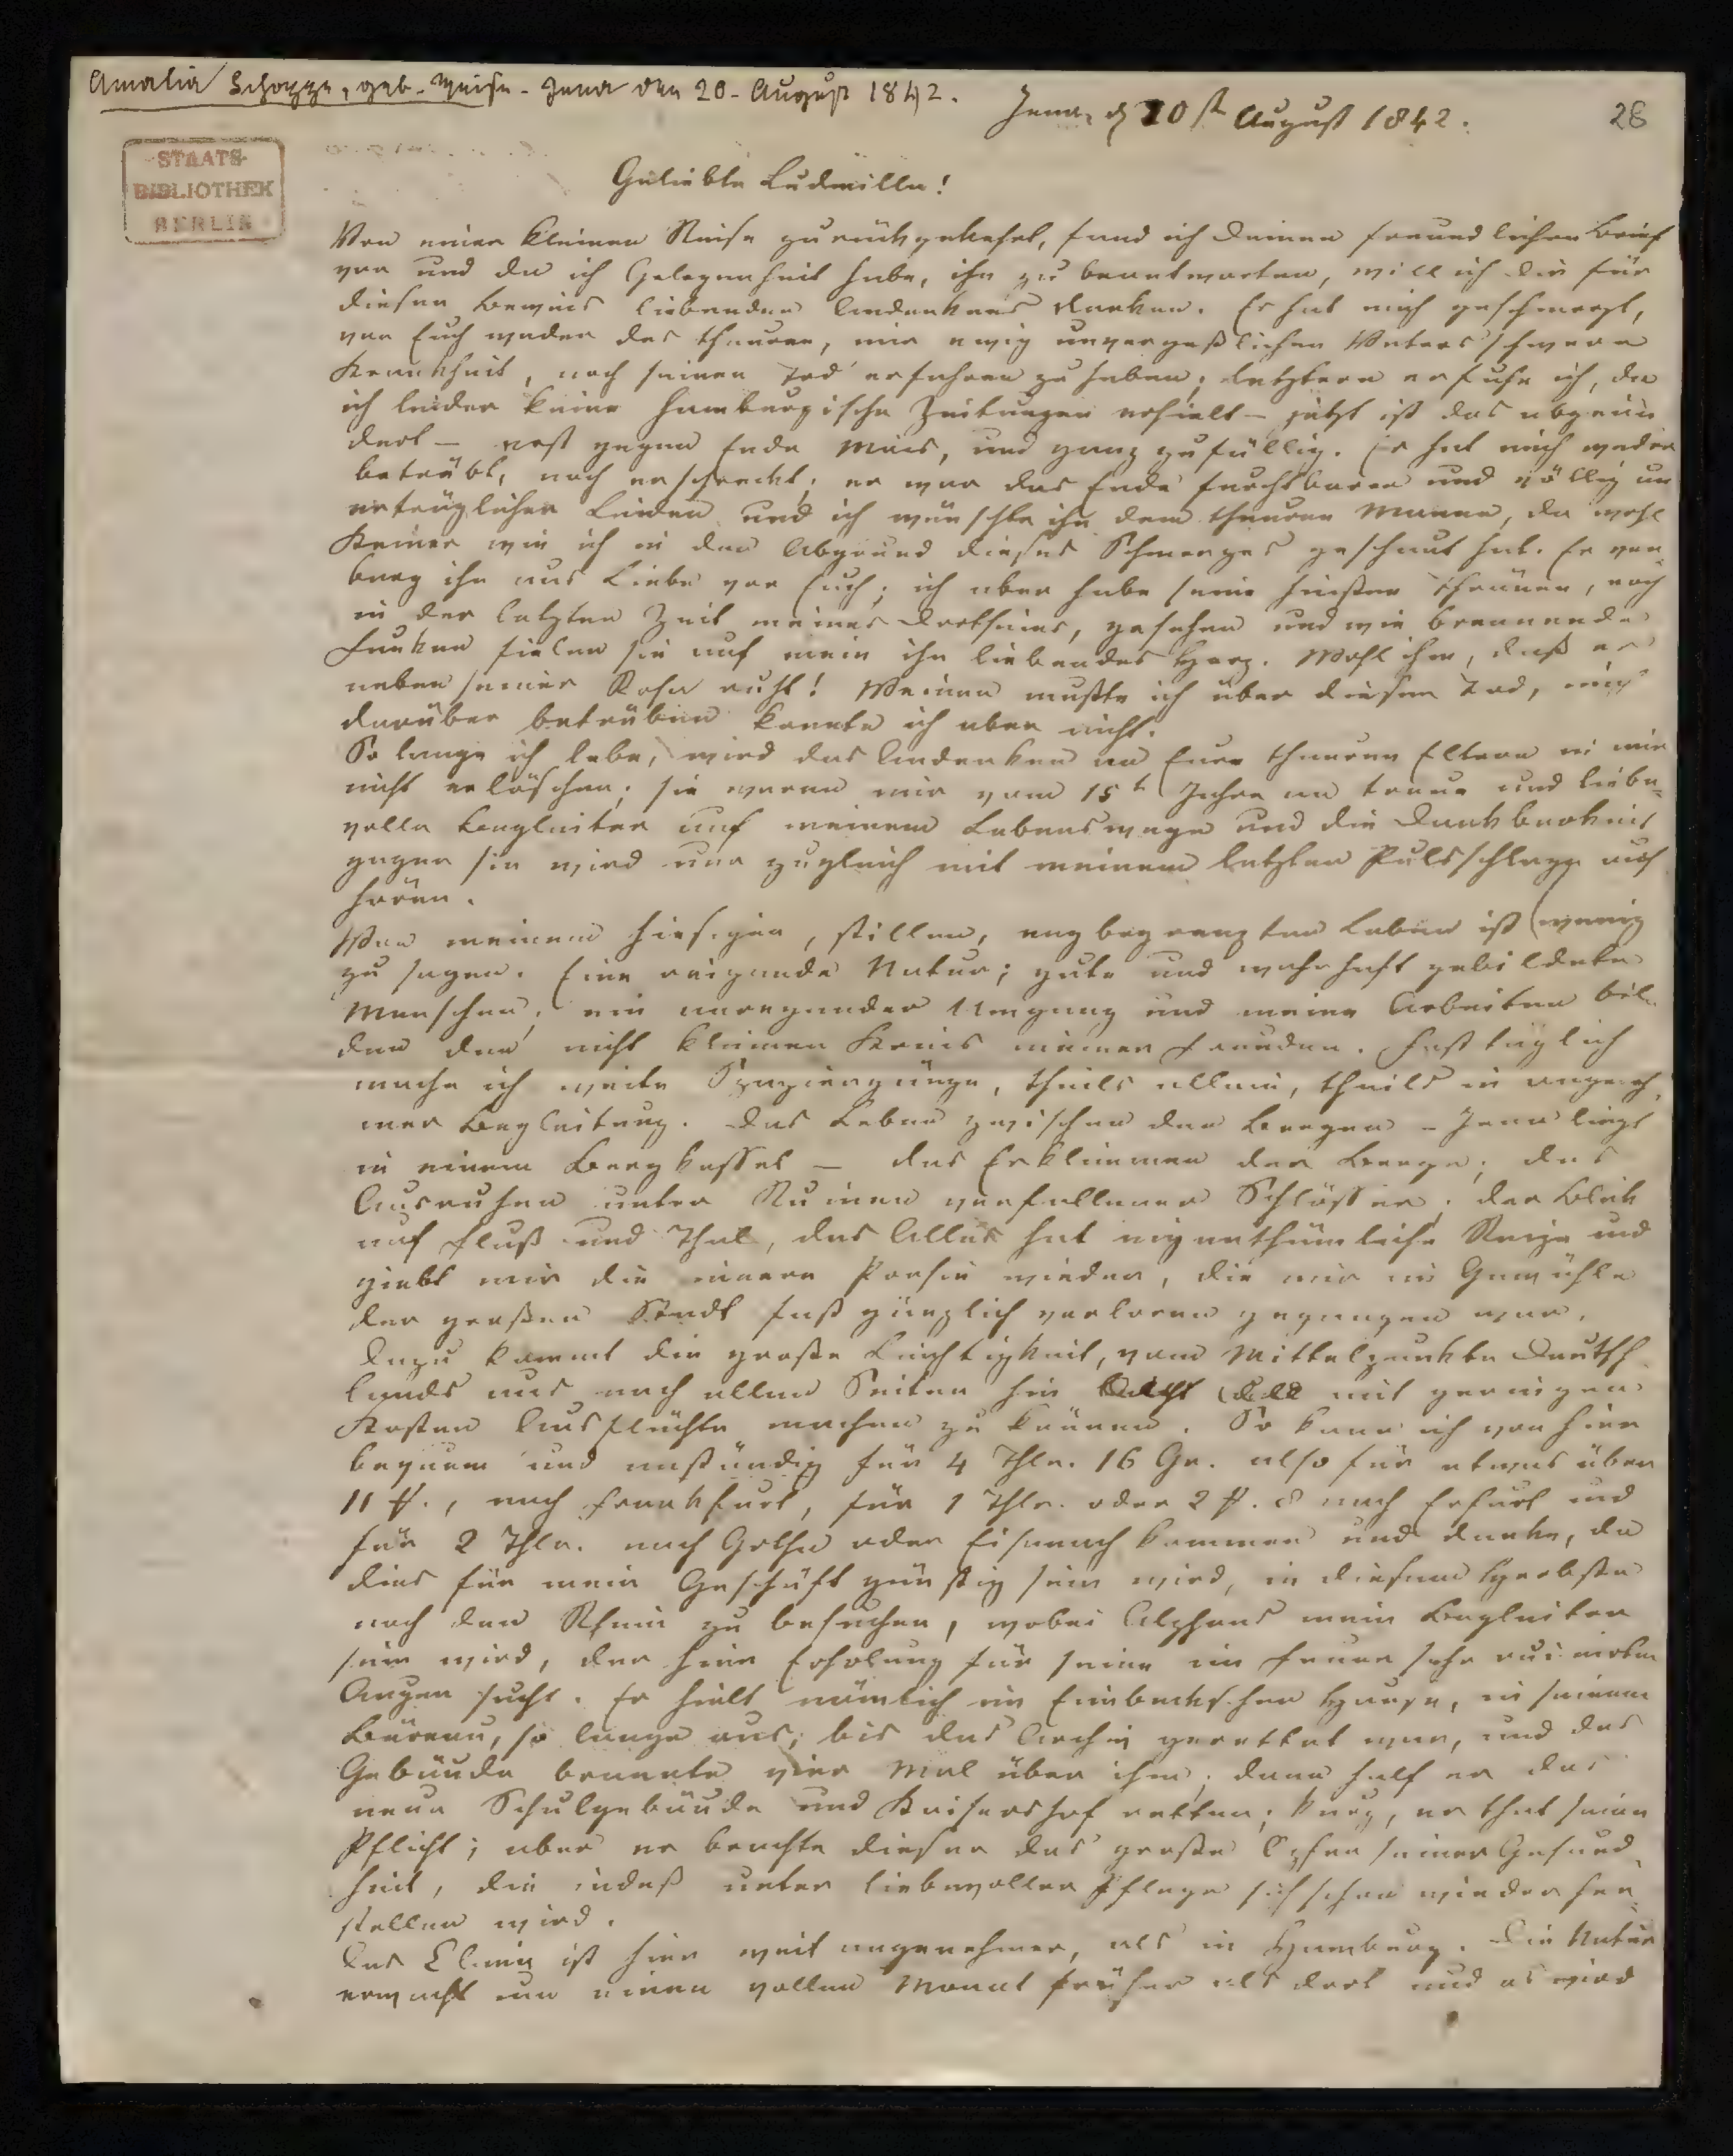 Amalia Schoppe, geb. Weise - Jena den 20. August 1842.
Jena, d 20st August 1842.
28
STAATS-
BIBLIOTHEK
BERLIN
Geliebte Ludmilla!
Von einer kleinen Reise zurückgekehrt, fand ich Deinen freundlichen Brief
vor und da ich Gelegenheit habe, ihn zu beantworten, will ich Dir für
diesen Beweis liebenden Andenkens danken. Es hat mich geschmerzt,
von Euch weder des theuren, mir ewig unvergeßlichen Vaters schwere
Krankheit, noch seinen Tod erfahren zu haben; letztern erfuhr ich, da
ich leider keine hamburgische Zeitungen erhielt – jetzt ist das abgeän
dert – erst gegen Ende Mais, und ganz zufällig. Er hat mich weder
betrübt, noch erschreckt; er war das Ende furchtbarer und völlig un
erträglicher Leiden und ich wünschte ihn dem theuren Manne, da wohl
Keiner wie ich in den Abgrund dieses Schmerzes geschaut hat. Er ver
barg ihn aus Liebe vor Euch; ich aber habe seine heißen Thränen, noch
in der letzten Zeit meines Dortseins, gesehen und wie brennende
Funken fielen sie auf mein ihn liebendes Herz. Wohl ihm, daß er
neben seiner Rosa ruht! Weinen mußte ich über diesen Tod, mich
darüber betrüben konnte ich aber nicht.
So lange ich lebe, wird das Andenken an Eure theuren Eltern in mir
nicht erlöschen; sie waren mir vom 15t Jahre an treue und liebe-
volle Begleiter auf meinem Lebenswege und die Dankbarkeit
gegen sie wird nur zugleich mit meinem letzten Pulsschlage auf
hören.
Von meinem hiesigen, stillen, engbegrenzten Leben ist wenig
zu sagen. Eine reizende Natur; gute und wahrhaft gebildete
Menschen; ein anregender Umgang und meine Arbeiten bil-
den den nicht kleinen Kreis meiner Freuden. Fast täglich
mache ich weite Spaziergänge, theils allein, theils in angeneh
mer Begleitung. Das Leben zwischen den Bergen - Jena liegt
in einem Bergkessel – das Erklimmen der Berge; das
Ausruhen unter Ruinen verfallener Schlösser; der Blick
auf Fluß und Thal, das Alles hat eigenthümliche Reize und
giebt mir die innere Poesie wieder, die mir im Gewühle
der großen Stadt fast gänzlich verloren gegangen war.
Dazu kommt die große Leichtigkeit, vom Mittelpunkte Deutsch
lands aus nach allen Seiten hin mit geringen
Kosten Ausflüchte machen zu können. So kann ich von hier
bequem und anständig für 4 Thlr. 16 Gr. also für etwas über
11 ₰., nach Frankfurt, für 1 Thlr. oder 2 ₰. 8 nach Erfurt und
für 2 Thlr. nach Gotha oder Eisenach kommen und denke, da
dies für mein Geschäft günstig sein wird, in diesem Herbste
noch den Rhein zu besuchen, wobei Alphons mein Begleiter
sein wird, der hier Erholung für seine im Feuer sehr ruinirten
Augen sucht. Er hielt nämlich im Eimbeckschen Hause, in seinem
Büreau, so lange aus, bis das Archiv gerettet war, und das
Gebäude brannte vier Mal über ihm; dann half er das
neue Schulgebäude und Kaisershof retten; kurz, er that seine
Pflicht; aber er brachte dieser das große Opfer seiner Gesund
heit, die indeß unter liebevoller Pflege sich schon wieder her-
stellen wird.
Das Clima ist hier weit angenehmer, als in Hamburg. Die Natur
erwacht um einen vollen Monat früher als dort und es wird